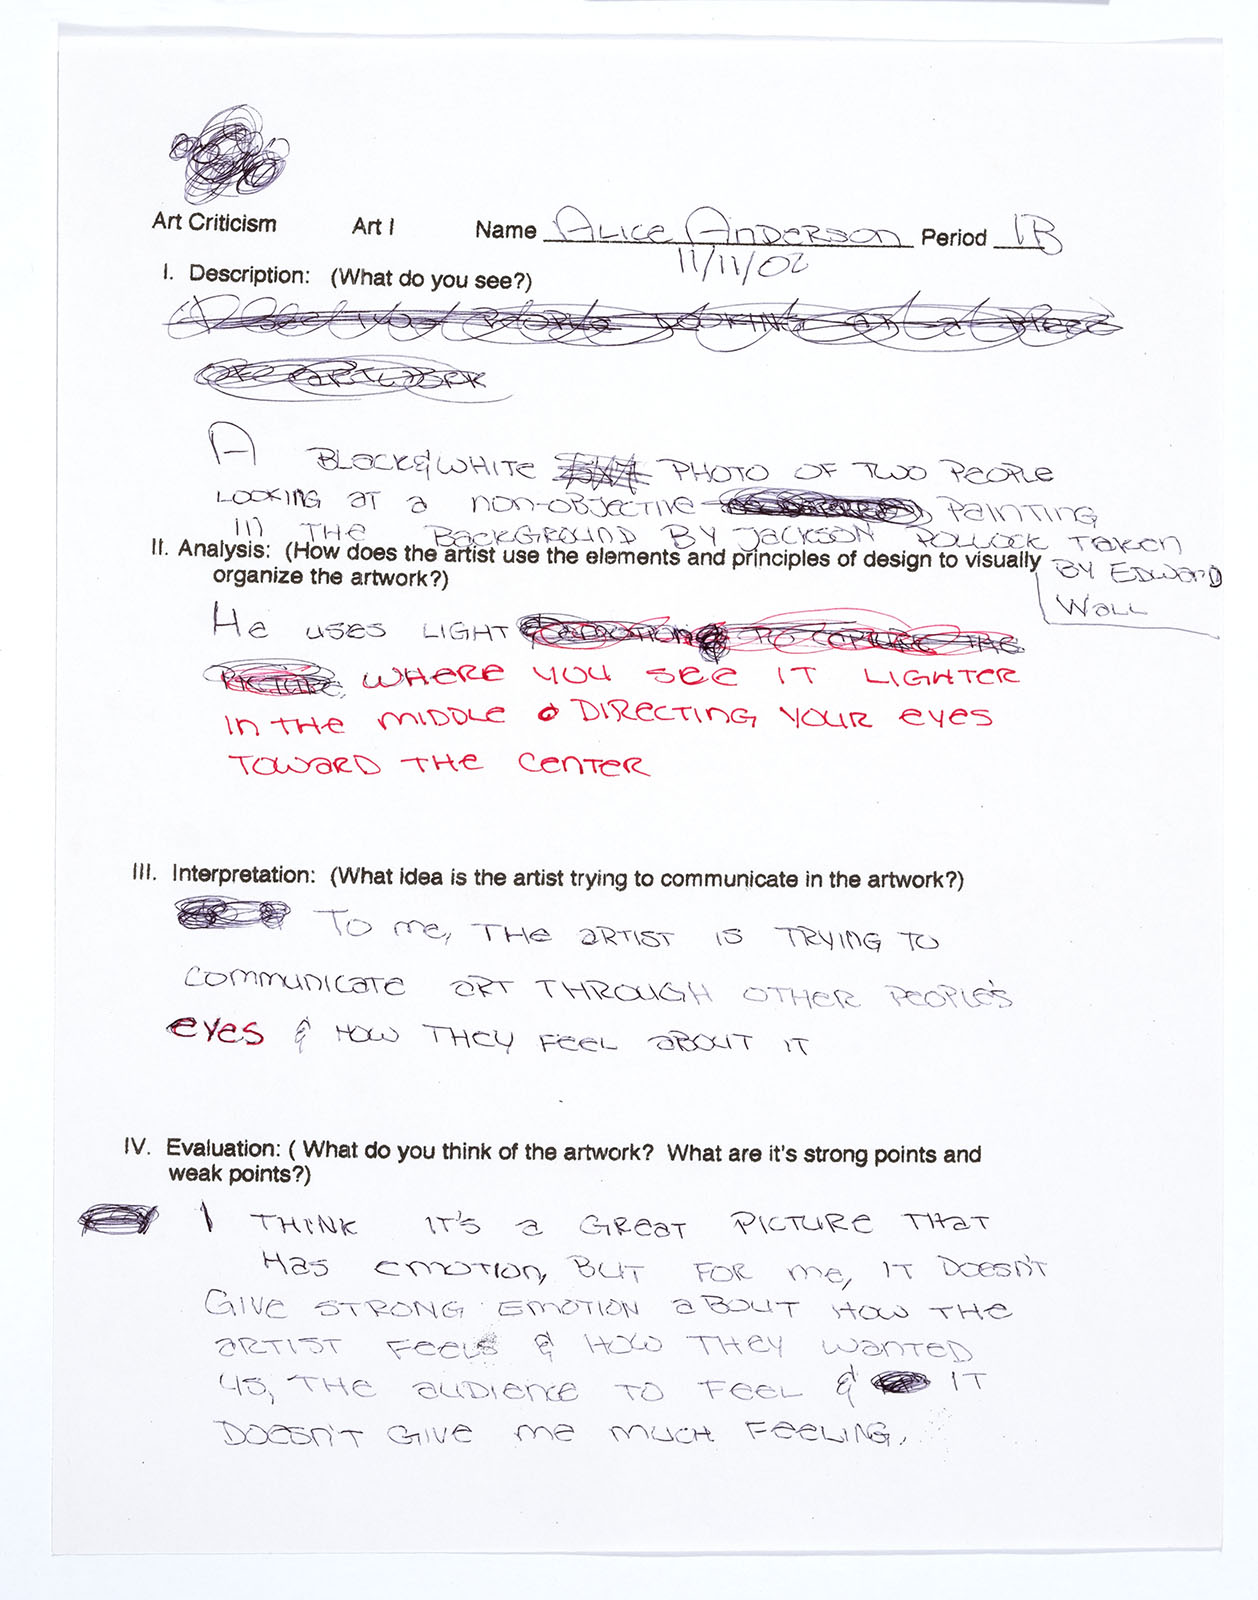 Art Criticism Art I Name Alice Anderson Period 1B
11/11/02
I. Description: (What do you see?)
I see two people looking at a piece
of artwork
A Black & white photo of two people
looking at a non-objective painting
in the background by Jackson Pollock taken
by Edward
Wall
II. Analysis: (How does the artist use the elements and principles of design to visually
organize the artwork?)
He uses light to capture the
picture where you see it lighter
in the middle directing your eyes
toward the center
III. Interpretation: (What idea is the artist trying to communicate in the artwork?)
To me, the artist is trying to
communicate art through other people's
eyes & how they feel about it
IV. Evaluation: ( What do you think of the artwork? What are it's strong points and
weak points?)
I think it's a great picture that
has emotion, but for me, it doesn't
give strong emotion about how the
artist feels & how they wanted
us, the audience to feel & it
doesn't give me much feeling.